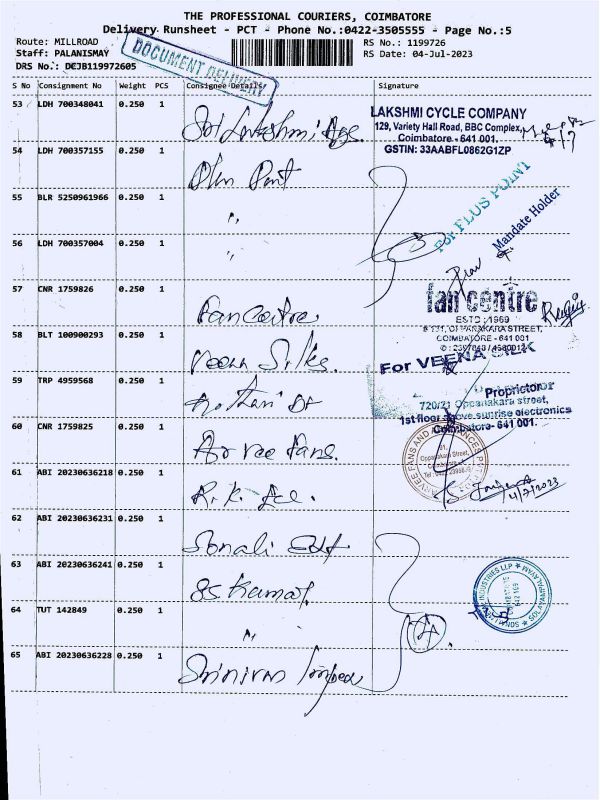 THE PROFESSIONAL COURIERS, COIMBATORE
Delivery Runsheet - PCT - Phone No.:0422-3505555 - Page No.:5
Route: MILLROAD
RS No.: 1199726
Staff: PALANISMAY
RS Date: 04-Jul-2023
DRS No.: DCJB119972605
DOCUMENT DELIVERY
S No Consignment No Weight PCS Consignee Details Signature
53 LDH 700348041 0.250 1
Sri Lakshmi Age.
LAKSHMI CYCLE COMPANY
129, Variety Hall Road, BBC Complex,
Coimbatore - 641 001.
GSTIN: 33AABFL0862G1ZP
54 LDH 700357155 0.250 1
55 BLR 5250961966 0.250 1
"
For FLUS POINT
Mandate Holder
56 LDH 700357004 0.250 1
"
57 CNR 1759826 0.250 1
Fan Centre
fan centre
ESTD : 1969
OPPANAKARA STREET,
COIMBATORE - 641 001
58 BLT 100900293 0.250 1
Veena Silks.
For VEENA SILK
Proprietor
59 TRP 4959568 0.250 1
720/21 Oppanakara street,
1st floor above sunrise electronics
Coimbatore- 641 001.
60 CNR 1759825 0.250 1
Ar vee Fans.
ARVEE FANS AND APPLIANCES PVT
Oppanakara Street,
Coimbatore
4/7/2023
61 ABI 20230636218 0.250 1
R.K. Age.
62 ABI 20230636231 0.250 1
Sonali
63 ABI 20230636241 0.250 1
SS Kumar.
INDUSTRIES LLP
64 TUT 142849 0.250 1
"
65 ABI 20230636228 0.250 1
Srinivas Impex